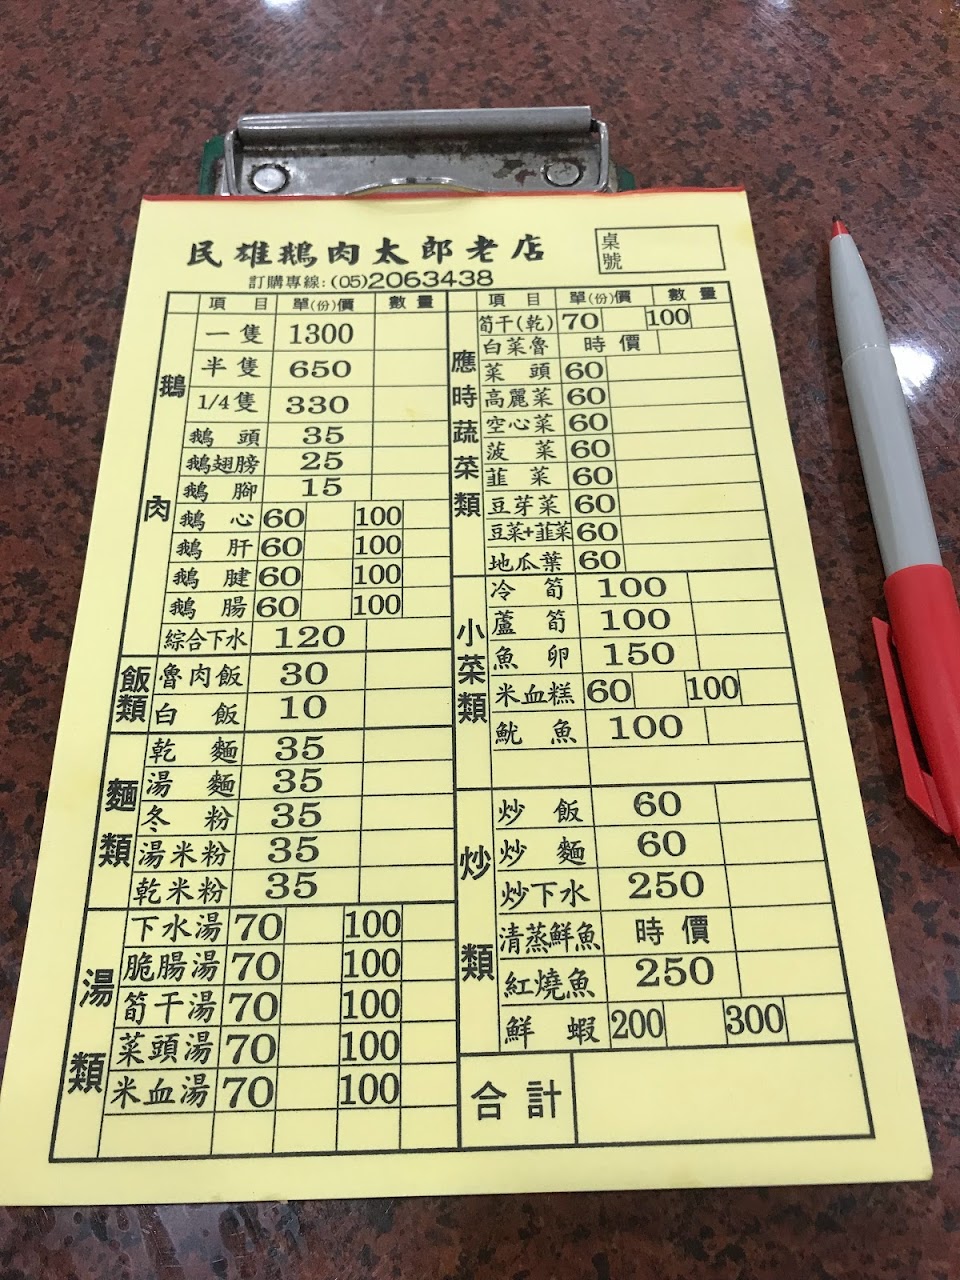 民雄鵝肉太郎老店
訂購專線:(05)2063438
桌號
項目 單(份)價 數量
鵝肉
一隻 1300
半隻 650
1/4隻 330
鵝頭 35
鵝翅膀 25
鵝腳 15
鵝心 60 100
鵝肝 60 100
鵝腱 60 100
鵝腸 60 100
綜合下水 120
飯類
魯肉飯 30
白飯 10
麵類
乾麵 35
湯麵 35
冬粉 35
湯米粉 35
乾米粉 35
湯類
下水湯 70 100
脆腸湯 70 100
筍干湯 70 100
菜頭湯 70 100
米血湯 70 100
項目 單(份)價 數量
應時蔬菜類
筍干(乾) 70 100
白菜魯 時價
菜頭 60
高麗菜 60
空心菜 60
菠菜 60
韭菜 60
豆芽菜 60
豆菜+韮菜 60
地瓜葉 60
小菜類
冷筍 100
蘆筍 100
魚卵 150
米血糕 60 100
魷魚 100
炒類
炒飯 60
炒麵 60
炒下水 250
清蒸鮮魚 時價
紅燒魚 250
鮮蝦 200 300
合計